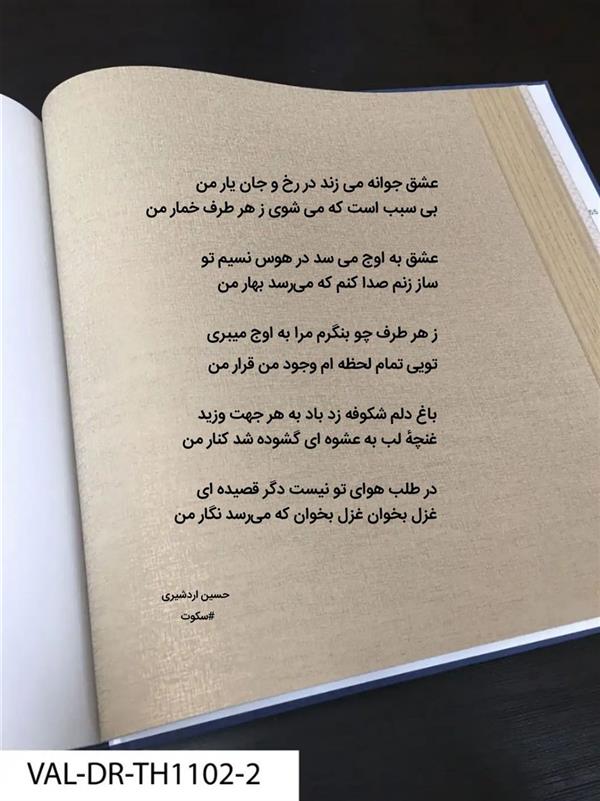 عشق جوانه می زند در رخ و جان یار من
بی سبب است که می شوی ز هر طرف خمار من
عشق به اوج می سد در هوس نسیم تو
ساز زنم صدا کنم که می‌رسد بهار من
ز هر طرف چو بنگرم مرا به اوج میبری
تویی تمام لحظه ام وجود من قرار من
باغ دلم شکوفه زد باد به هر جهت وزید
غنچهٔ لب به عشوه ای گشوده شد کنار من
در طلب هوای تو نیست دگر قصیده ای
غزل بخوان غزل بخوان که می‌رسد نگار من
حسین اردشیری
#سکوت
55
VAL-DR-TH1102-2